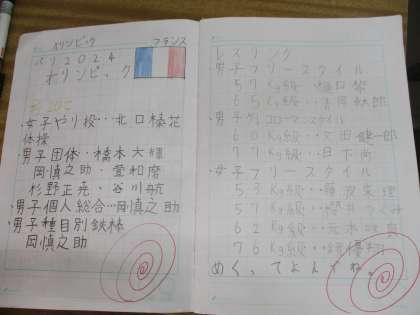 オリンピック フランス
パリ2024
オリンピック
女子やり投‥北口榛花
体操
男子団体‥橋本大輝
岡慎之助・萱和磨
杉野正尭・谷川航
男子個人総合‥岡慎之助
男子種目別鉄棒
岡慎之助
レスリング
男子フリースタイル
57Kg級‥樋口黎
65Kg級‥清岡
男子グレコローマンスタイル
60Kg級‥文田健一郎
77Kg級‥日下尚
女子フリースタイル
53Kg級‥藤波朱理
57Kg級‥櫻井つぐみ
62Kg級‥元木咲良
76Kg級‥鏡優翔
めくってよんでね。